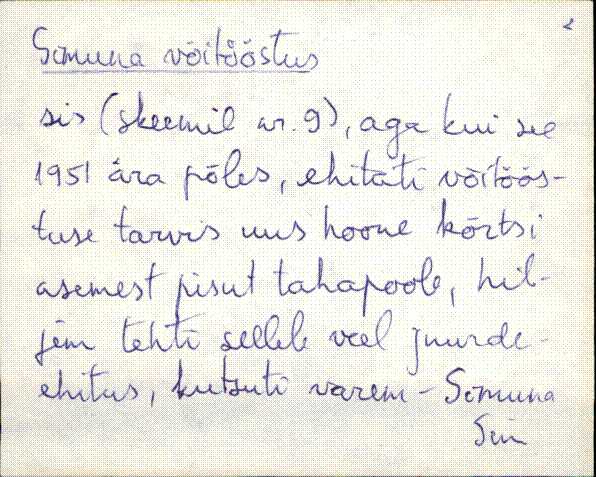 2
Simuna võitööstus
sis (skeemil nr. 9), aga kui see
1951 ära põles, ehitati võitöös-
tuse tarvis uus hoone kõrtsi
asemest pisut tahapoole, hil-
jem tehti sellele veel juurde-
ehitus, kutsuti varem - Simuna
Sim